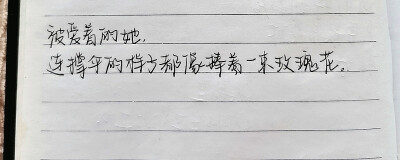 被爱着的她，
连撑伞的样子都像捧着一束玫瑰花。